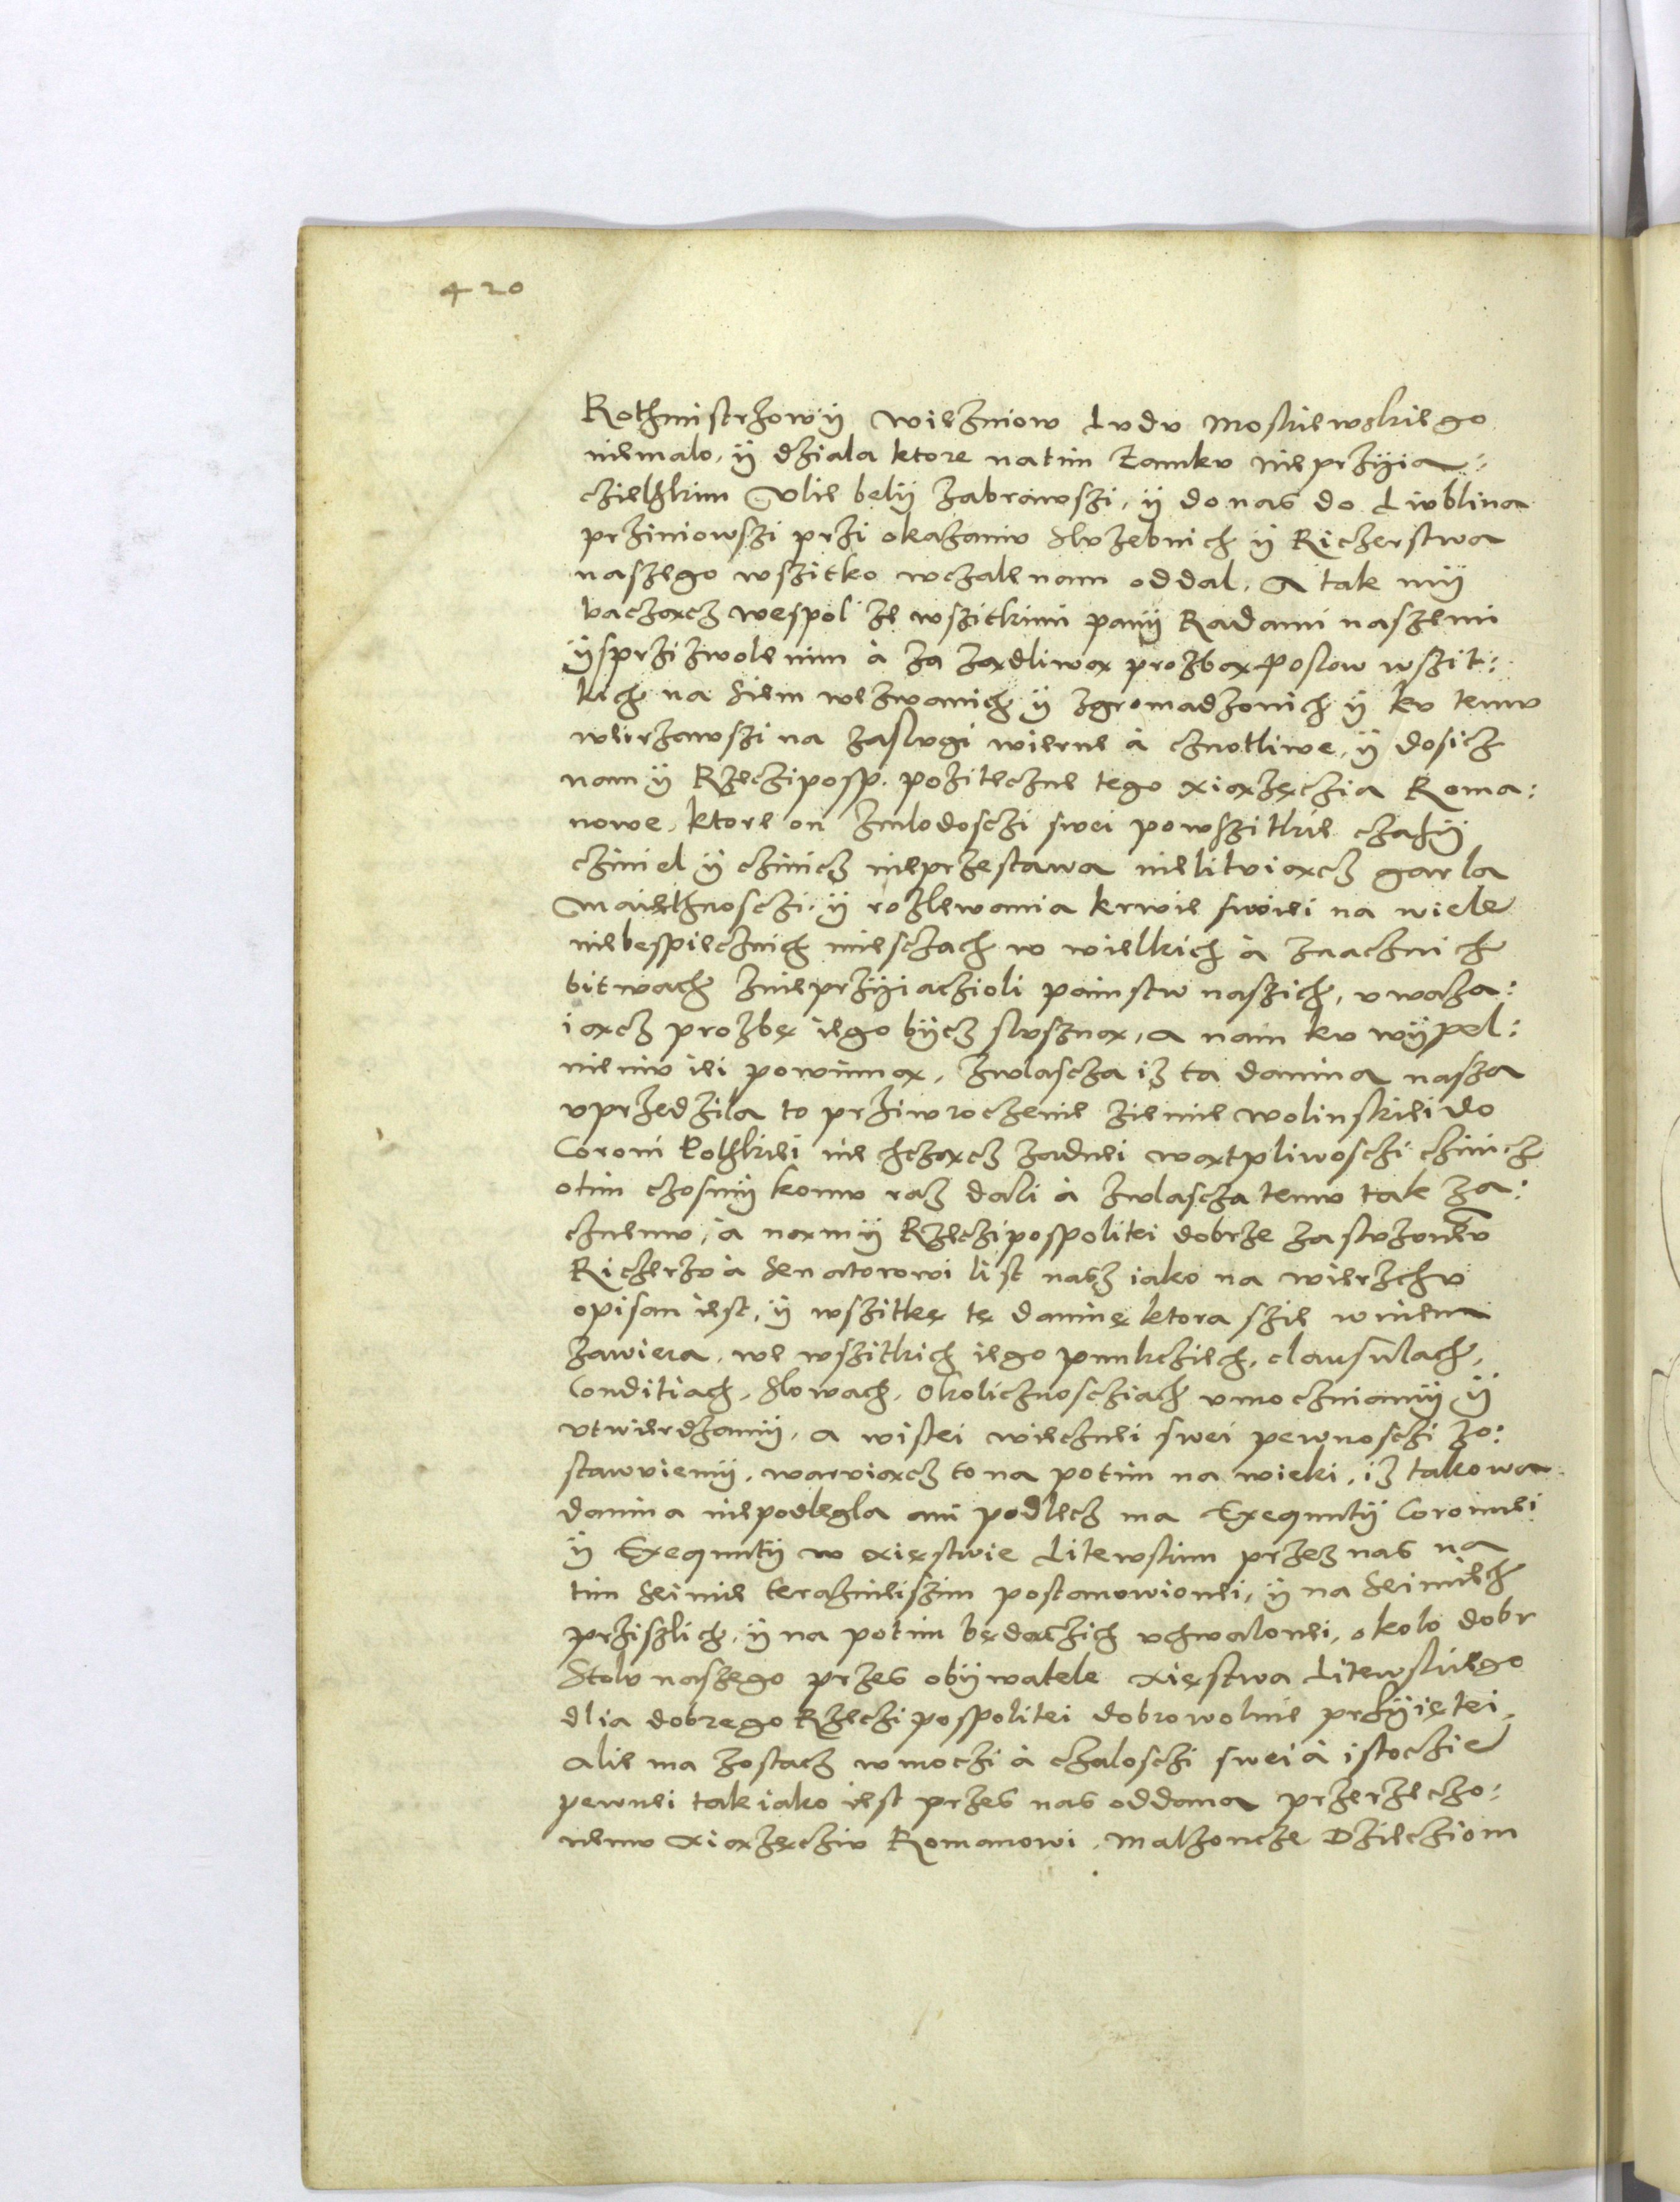 420
Rothmistrzowÿ wiezniow Ludv Moskiewskiego
niemalo, ÿ dziala ktore natim Zamkv nieprzÿia=
czielskim Vlie belÿ zabrawszi, ÿ do nas do Lvblina
prziniowszi przi okazaniv Slvzebnich ÿ Riczerstwa
naszego wszitko wczale nam oddal. A tak mÿ
baczącz wespol ze wszitkimi panÿ Radami naszemi
ÿsprzizwolenim à za ządliwą prozbą Poslow wszit:
kich na Siem wezwanich ÿ zgromadzonich ÿ kv temv
weirzawszi na zaslvgi wierne à cznotliwe, ÿ dosicz
nam ÿ Rzecziposp. poziteczne tego xiązęczia Roma:
nowe, ktore on zmlodosczi swei powszitkie czasÿ
cziniel ÿ czinicz nieprzestawa nielitviącz garla
Maiethnosczi, ÿ rozlewania krwie swoiei na wiele
niebespiecznich miesczach w wielkich à znacznich
bitwach znieprzÿiaczioli painstw naszich, vwaza:
iącz prozbę iego bÿcz slvszną, a nam kv wÿpel:
nieniv iei powinną, zwlascza iz ta danina nasza
vprzedzila to prziwroczenie ziemie wolinskiei do
Coroni Polskiei nie chcząncz zadnei wątpliwosczi czinicz
otim czosmÿ komv raz dali à zwlascza temv tak za:
cznemv, à nam ÿ Rzeczipospolitei dobrze zaslvzonemv
Riczerzv à Senatorowi list nasz iako na wierzchv
opisan iest, ÿ wszitkę tę daninę ktora szie wniem
zawiera, we wszitkich iego punkcziech, clausulach,
Conditiach, Slowach, Okolicznoscziach vmoczniamÿ ÿ
vtwierdzamÿ, a wistei wiecznei swei pewnosczi zo:
stawviemÿ, warviącz to na potim na wieki, iz takowa
danina niepodlegla ani podlecz ma Exequutÿ Coronnei
ÿ Exequutÿ w xięstwie Litewskim przez nas na
tim Seimie terazniejszim postanowionei, ÿ na Seimiech
przisslich, ÿ na potim będączich vchwalonei, okolo dobr
Stolv naszego przes obÿwatele xięstwa Litewskiego
dlia dobrego Rzeczipospolitei dobrowolnie przÿiętei,
alie ma zostacz wmoczi à czalosczi swei à istoczie
pewnei tak iako iest przes nas oddana przerzeczo:
nemv xiązęcziv Romanowi, Malzoncze Dziecziom